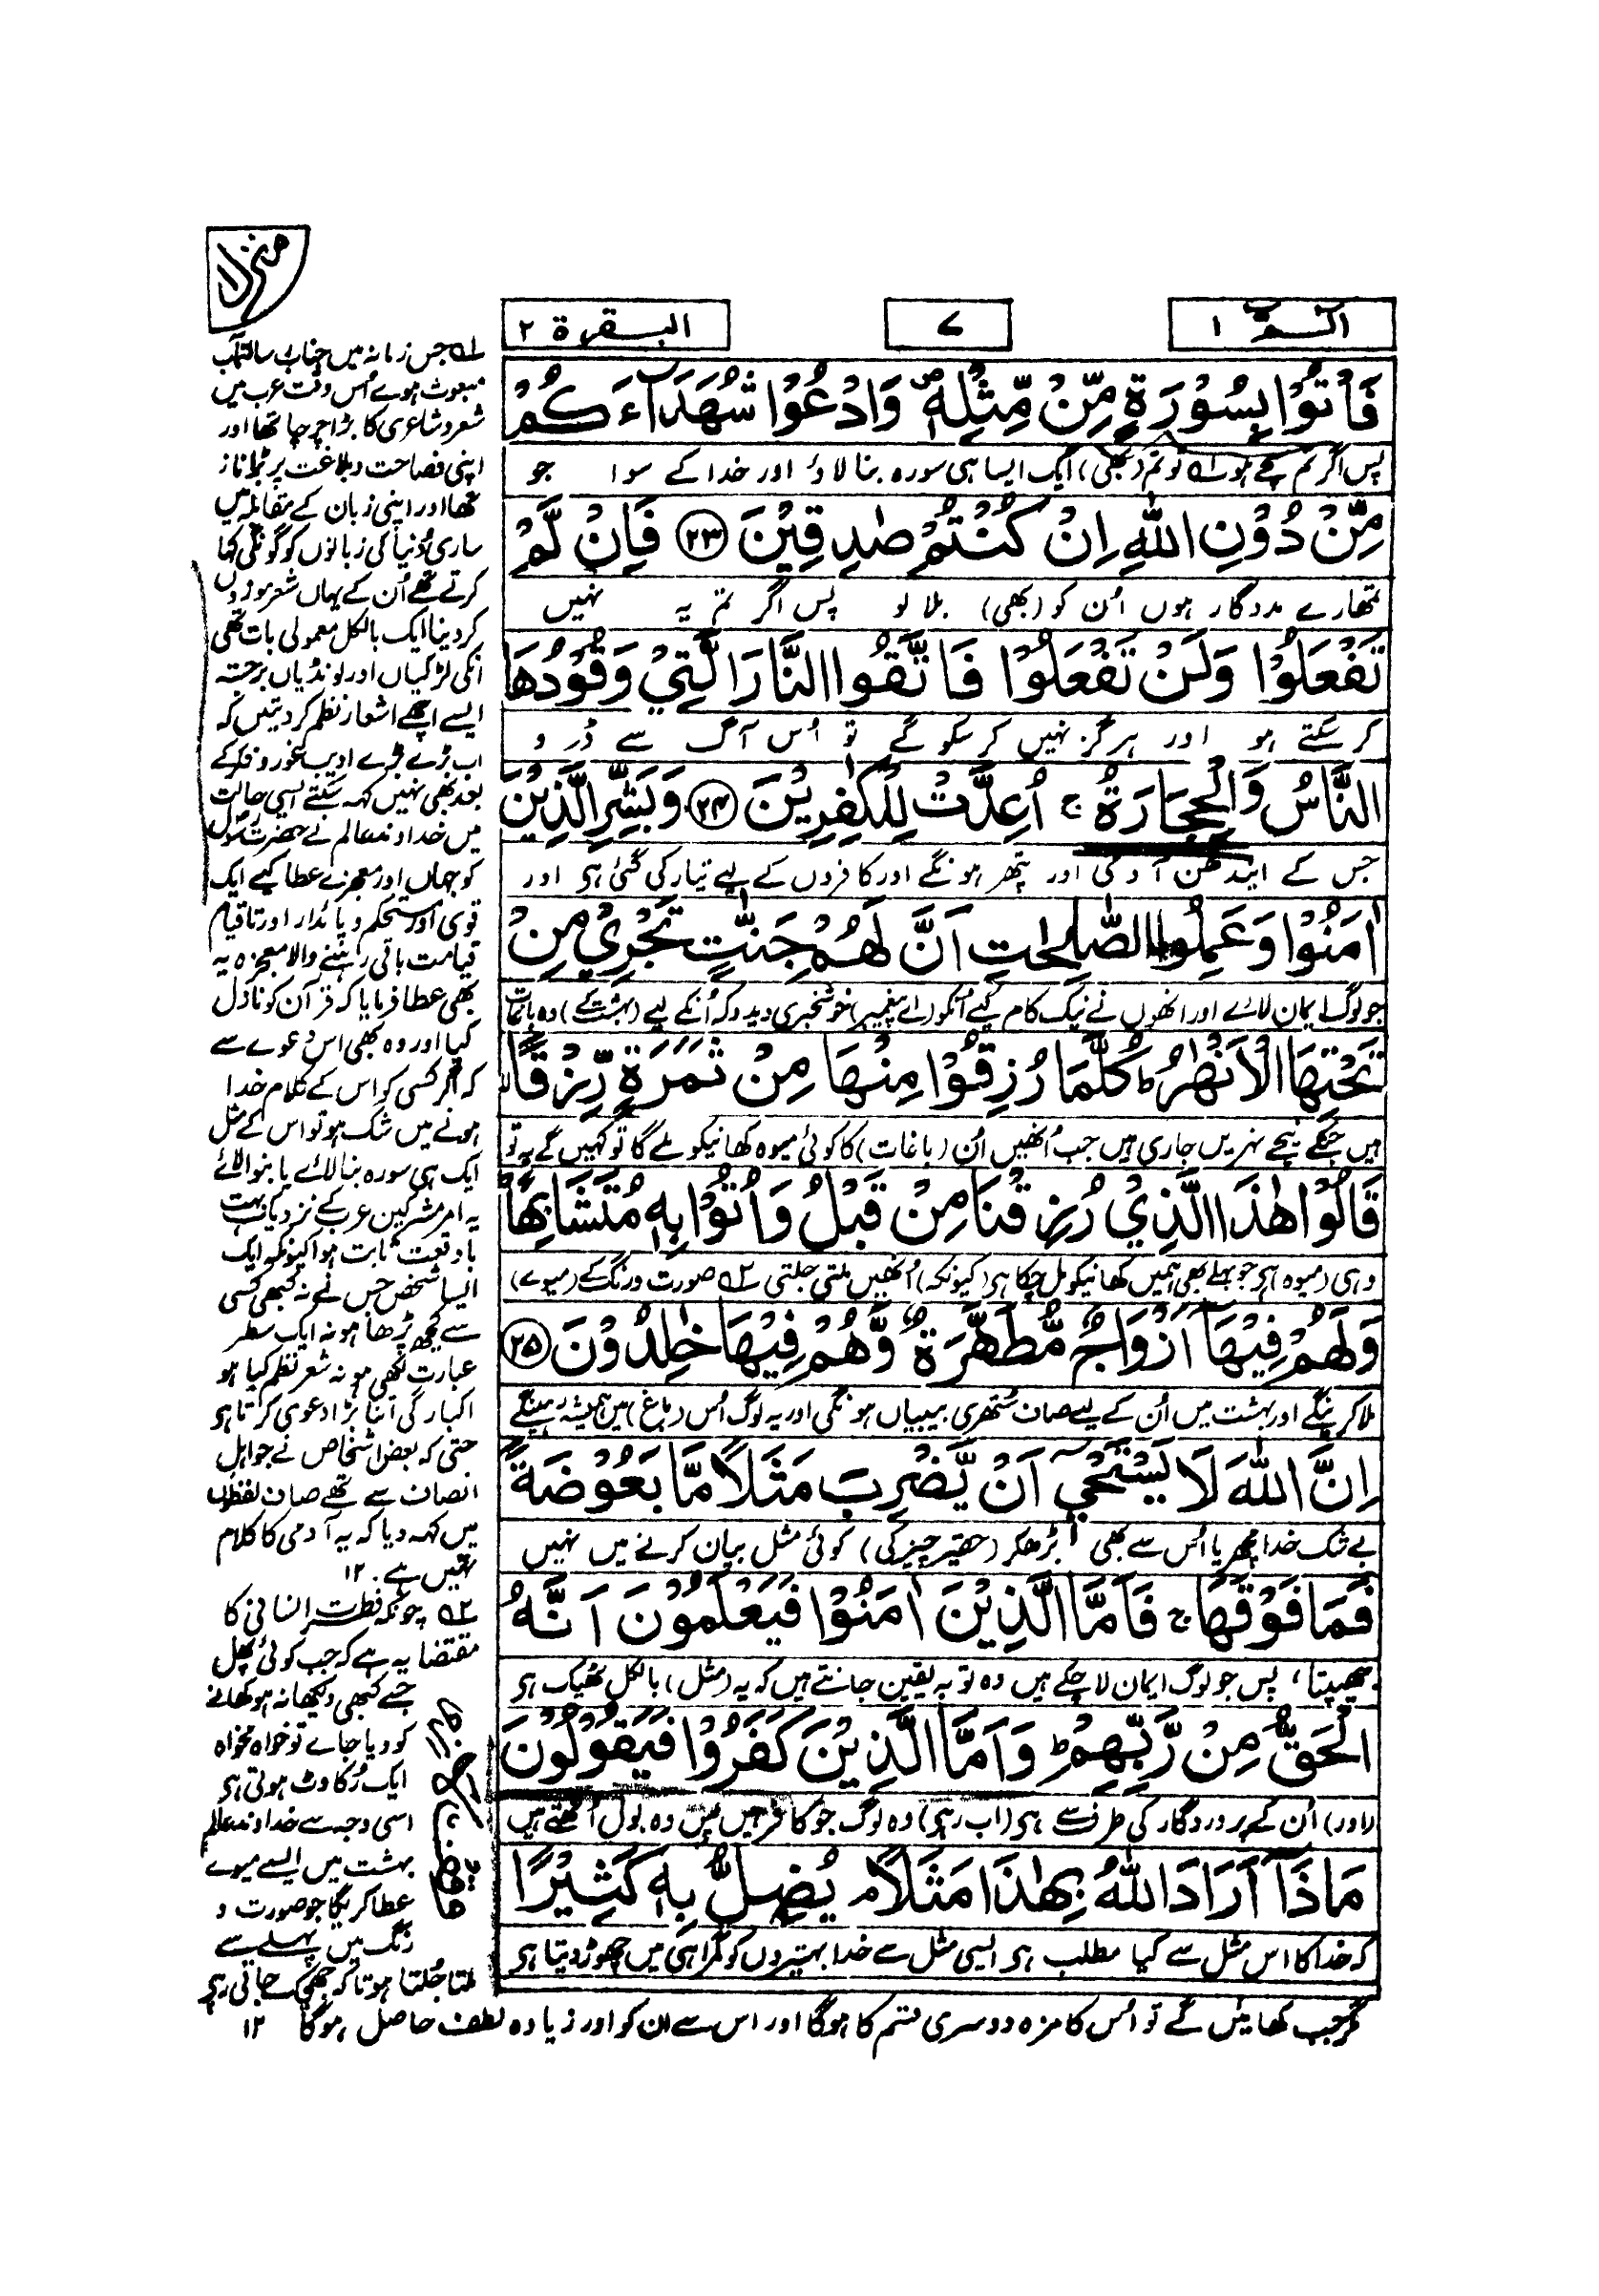 الٓـمّٓ ١
٧
البقرة ٢
فَاْتُوْا بِسُوْرَةٍ مِّنْ مِّثْلِهٖ ص وَادْعُوْا شُهَدَآءَكُمْ
پس اگر تم سچے ہو ۱؎ تو تم (بھی) ایک ایسا ہی سورہ بنا لاؤ اور خدا کے سوا جو
مِّنْ دُوْنِ اللّٰهِ اِنْ كُنْتُمْ صٰدِقِيْنَ ﴿۲۳﴾ فَاِنْ لَّمْ
تمھارے مددگار ہوں اُن کو (بھی) بلا لو پس اگر تم یہ نہیں
تَفْعَلُوْا وَلَنْ تَفْعَلُوْا فَاتَّقُوا النَّارَ الَّتِيْ وَقُوْدُهَا
کر سکتے ہو اور ہرگز نہیں کر سکو گے تو اُس آگ سے ڈرو
النَّاسُ وَالْحِجَارَةُ ج اُعِدَّتْ لِلْكٰفِرِيْنَ ﴿۲۴﴾ وَبَشِّرِ الَّذِيْنَ
جس کے ایندھن آدمی اور پتھر ہونگے اور کافروں کے لیے تیار کی گئی ہی اور
اٰمَنُوْا وَعَمِلُوا الصّٰلِحٰتِ اَنَّ لَهُمْ جَنّٰتٍ تَجْرِيْ مِنْ
جو لوگ ایمان لائے اور انھوں نے نیک کام کیے اُنکو (اے پیغمبر) خوشخبری دیدو کہ اُنکے لیے (بہشت کے) وہ باغات
تَحْتِهَا الْاَنْهٰرُ ط كُلَّمَا رُزِقُوْا مِنْهَا مِنْ ثَمَرَةٍ رِّزْقًا لا
ہیں جنکے نیچے نہریں جاری ہیں جب اُنھیں اُن (باغات) کا کوئی میوہ کھانیکو ملے گا تو کہیں گے یہ تو
قَالُوْا هٰذَا الَّذِيْ رُزِقْنَا مِنْ قَبْلُ وَاُتُوْا بِهٖ مُتَشَابِهًا ط
وہی (میوہ) ہی جو پہلے بھی ہمیں کھانیکو مل چکا ہی (کیونکہ) اُنھیں ملتی جلتی ۲؎ صورت و رنگ کے (میوے)
وَلَهُمْ فِيْهَآ اَزْوَاجٌ مُّطَهَّرَةٌ وَّهُمْ فِيْهَا خٰلِدُوْنَ ﴿۲۵﴾
ملا کرینگے اور بہشت میں اُن کے لیے صاف ستھری بیبیاں ہونگی اور یہ لوگ اُس (باغ) میں ہمیشہ رہینگے
اِنَّ اللّٰهَ لَا يَسْتَحْيٖٓ اَنْ يَّضْرِبَ مَثَلًا مَّا بَعُوْضَةً
بے شک خدا مچھر یا اُس سے بھی بڑھکر (حقیر چیز کی) کوئی مثل بیان کرنے میں نہیں
فَمَا فَوْقَهَا ج فَاَمَّا الَّذِيْنَ اٰمَنُوْا فَيَعْلَمُوْنَ اَنَّهُ
جھیپتا، پس جو لوگ ایمان لا چکے ہیں وہ تو یہ یقین جانتے ہیں کہ یہ (مثل) بالکل ٹھیک ہی
الْحَقُّ مِنْ رَّبِّهِمْ ط وَاَمَّا الَّذِيْنَ كَفَرُوْا فَيَقُوْلُوْنَ
(اور) اُن کے پروردگار کی طرف سے ہی (اب رہے) وہ لوگ جو کافر ہیں پس وہ بول اُٹھتے ہیں
مَاذَآ اَرَادَ اللّٰهُ بِهٰذَا مَثَلًا م يُضِلُّ بِهٖ كَثِيْرًا
کہ خدا کا اس مثل سے کیا مطلب ہی ایسی مثل سے خدا بہتیروں کو گمراہی میں چھوڑ دیتا ہی
منزل
۱؎ جس زمانہ میں جناب رسالتمآب
مبعوث ہوے اُس وقت عرب میں
شعر و شاعری کا بڑا چرچا تھا اور
اپنی فصاحت و بلاغت پر بڑا ناز
تھا اور اپنی زبان کے مقابلہ میں
ساری دُنیا کی زبانوں کو گونگی کہا
کرتے تھے اُن کے یہاں شعر موزوں
کر دینا ایک بالکل معمولی بات تھی
انکی لڑکیاں اور لونڈیاں برجستہ
ایسے اچھے اشعار نظم کر دیتیں کہ
اب بڑے بڑے ادیب غور و فکر کے
بعد بھی نہیں کہہ سکتے ایسی حالت
میں خداوند عالم نے حضرت رسول
کو جہاں اور معجزے عطا کیے ایک
قوی اور مستحکم و پائدار اور تا قیام
قیامت باقی رہنے والا معجزہ یہ
بھی عطا فرمایا کہ قرآن کو نازل
کیا اور وہ بھی اس دعوے سے
کہ اگر کسی کو اس کے کلام خدا
ہونے میں شک ہو تو اس کے مثل
ایک ہی سورہ بنا لائے یا بنوا لائے
یہ امر مشرکین عرب کے نزدیک بہت
باوقعت ثابت ہوا کیونکہ ایک
ایسا شخص جس نے نہ کبھی کسی
سے کچھ پڑھا ہو نہ ایک سطر
عبارت لکھی ہو نہ شعر نظم کیا ہو
اکبارگی اتنا بڑا دعوی کرتا ہو
حتی کہ بعض اشخاص نے جو اہل
انصاف سے تھے صاف لفظوں
میں کہہ دیا کہ یہ آدمی کا کلام
نہیں ہے. ۱۲
۲؎ چونکہ فطرت انسانی کا
مقتضا یہ ہے کہ جب کوئی پھل
جسے کبھی دیکھا نہ ہو کھانے
کو دیا جاے تو خواہ مخواہ
ایک رُکاوٹ ہوتی ہی
اسی وجہ سے خداوند عالم
بہشت میں ایسے میوے
عطا کریگا جو صورت و
رنگ میں پہلے سے
ملتا جُلتا ہوتا کہ جھجک جاتی رہی
مگر جب کھائیں گے تو اُس کا مزہ دوسری قسم کا ہوگا اور اس سے ان کو اور زیادہ لطف حاصل ہوگا ۱۲